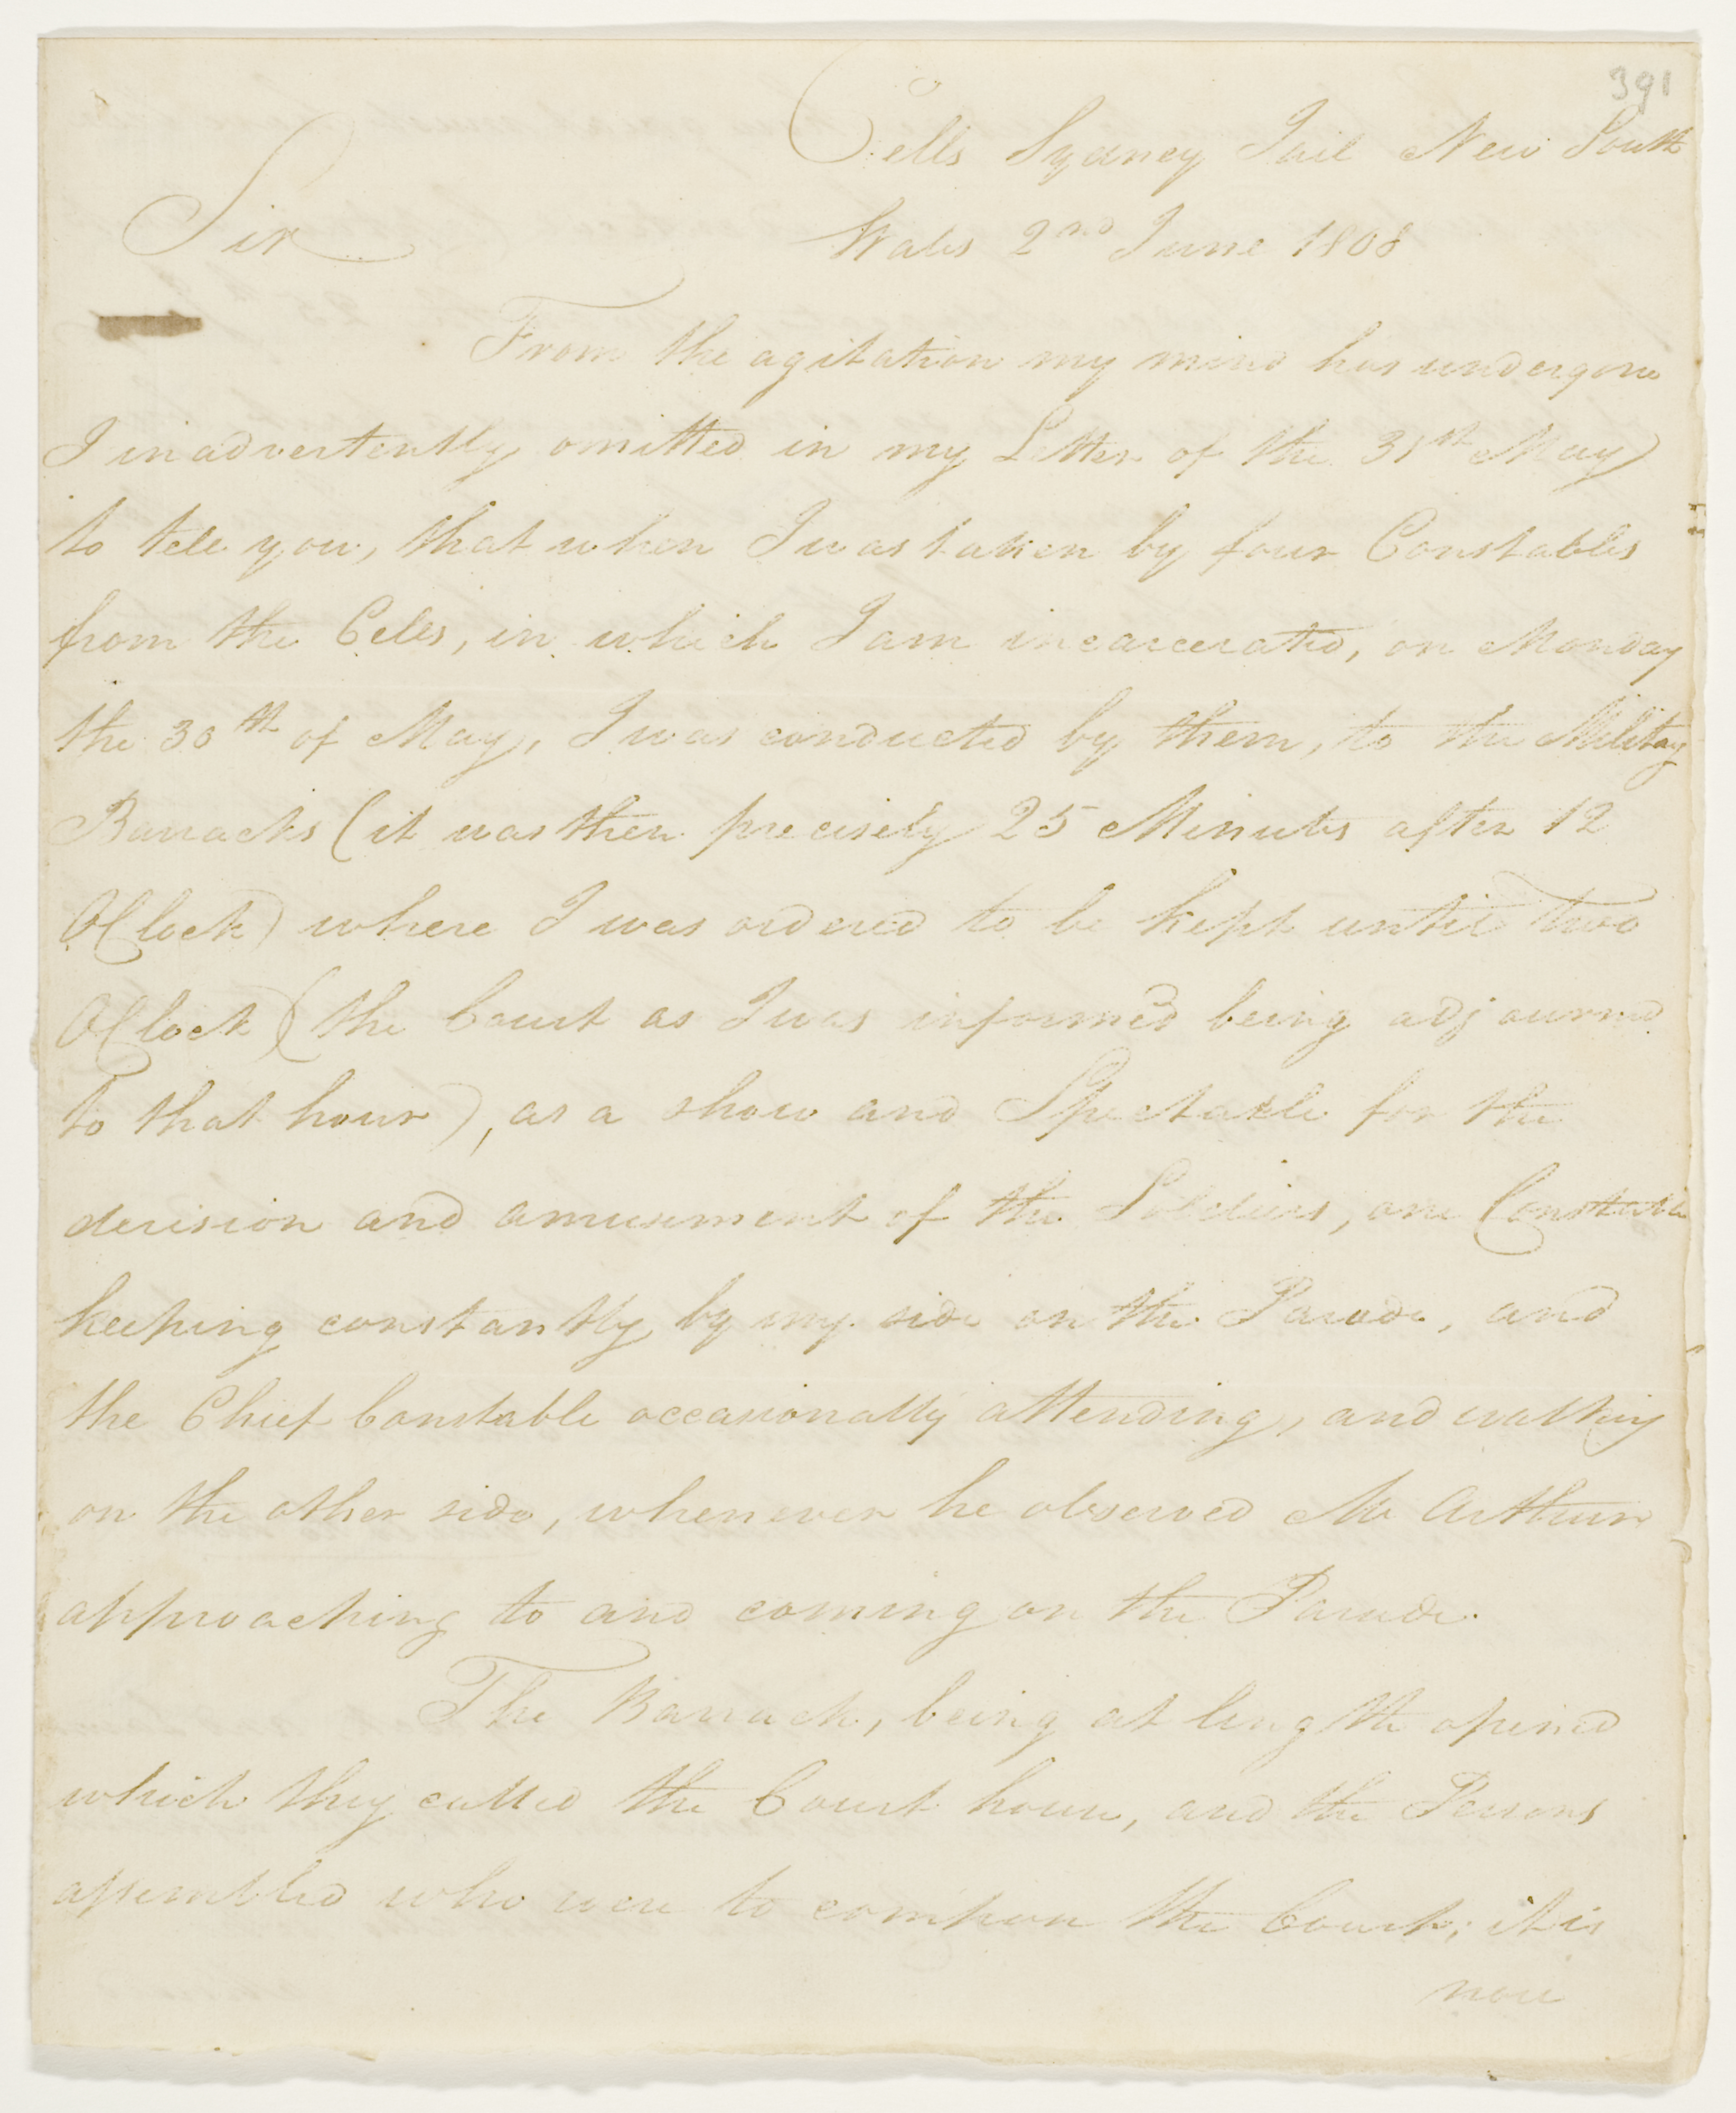 391
Cells Sydney Jail New South
Sir
Wales 2nd June 1808
From the agitation my mind has undergone
I inadvertently omitted in my Letter of the 31st May
to tell you, that when I was taken by four Constables
from the Cells, in which I am incarcerated, on Monday
the 30th of May, I was conducted by them, to the Military
Barracks (it was then precisely 25 Minutes after 12
OClock) where I was ordered to be kept until two
OClock (the Court as I was informed being adjourned
to that hour), as a show and Spectacle for the
derision and amusement of the Soldiers, one Constable
keeping constantly by my side on the Parade, and
the Chief Constable occasionally attending, and walking
on the other side, whenever he observed Mc Arthur
approaching to and coming on the Parade.
The Barrack, being at length opened
which they called the Court house, and the Persons
assembled who were to compose the Court; it is
now